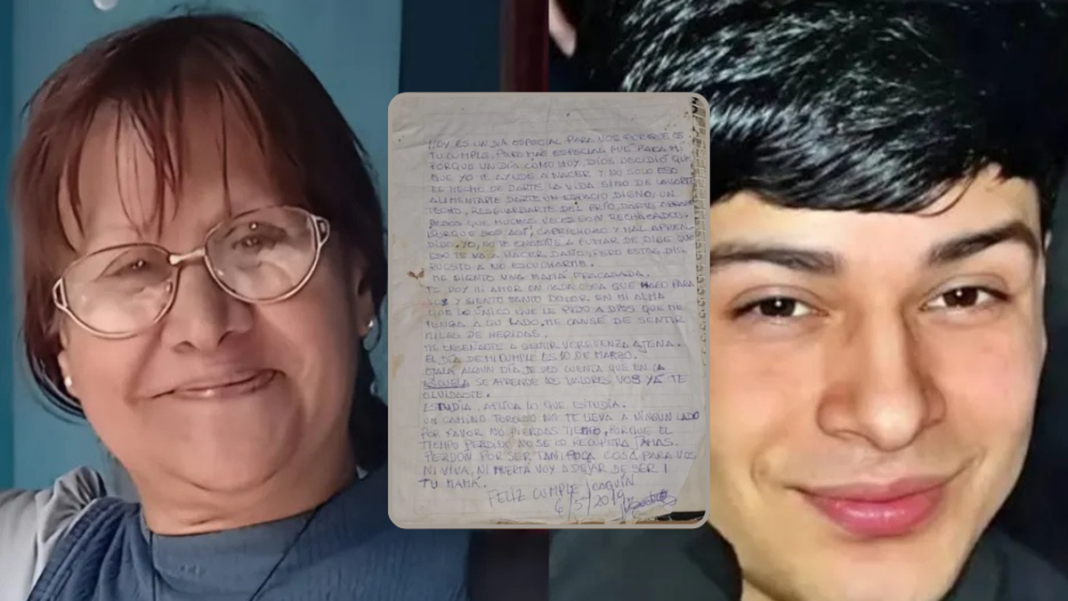 HOY ES UN DIA ESPECIAL PARA VOS PORQUE ES
TU CUMPLE, PERO MAS ESPECIAL FUÉ PARA MI
PORQUE UN DIA COMO HOY, DIOS DECIDIÓ QUE
QUE YO TE AYUDE A NACER Y NO SOLO ESO
EL HECHO DE DARTE LA VIDA SINO DE
ALIMENTARTE DARTE UN ESPACIO DIGNO, UN
TECHO, RESGUARDARTE DEL FRIO, DARTE
QUE MUCHAS VECES SON RECHAZADOS.
PORQUE SOS ASÍ, CAPRICHOSO Y MAL APREN
DIDO. YO, NO TE ENSEÑÉ A FUMAR DE DIGE QUE
ESO TE VA A HACER DAÑO, PERO ESTAS DIS
PUESTO A NO ESCUCHARME.
ME SIENTO UNA MAMÁ FRACASADA.
TE DOY MI AMOR EN CADA COSA QUE HAGO PARA
VOS Y SIENTO TANTO DOLOR EN MI ALMA
QUE LO ÚNICO QUE LE PIDO A DIOS QUE ME
TENGA A SU LADO, ME CANSÉ DE SENTIR
MILES DE HERIDAS.
ME ENSEÑASTE A SENTIR VERGUENZA AJENA.
EL DIA DE MI CUMPLE ES 10 DE MARZO.
OJALÁ ALGUN DÍA TE DES CUENTA QUE EN LA
ESCUELA SE APRENDE LOS VALORES VOS YA TE
OLVIDASTE.
ESTUDIA, APLICA LO QUE ESTUDIA.
UN CAMINO TORCIDO NO TE LLEVA A NINGUN LADO
POR FAVOR NO PIERDAS TIEMPO, PORQUE EL
TIEMPO PERDIDO NO SE LO RECUPERA JAMAS.
PERDÓN POR SER TAN POCA COSA PARA VOS
NI VIVA, NI MUERTA VOY A DEJAR DE SER
TU MAMÁ.
FELIZ CUMPLE JOAQUIN
6/5/2019